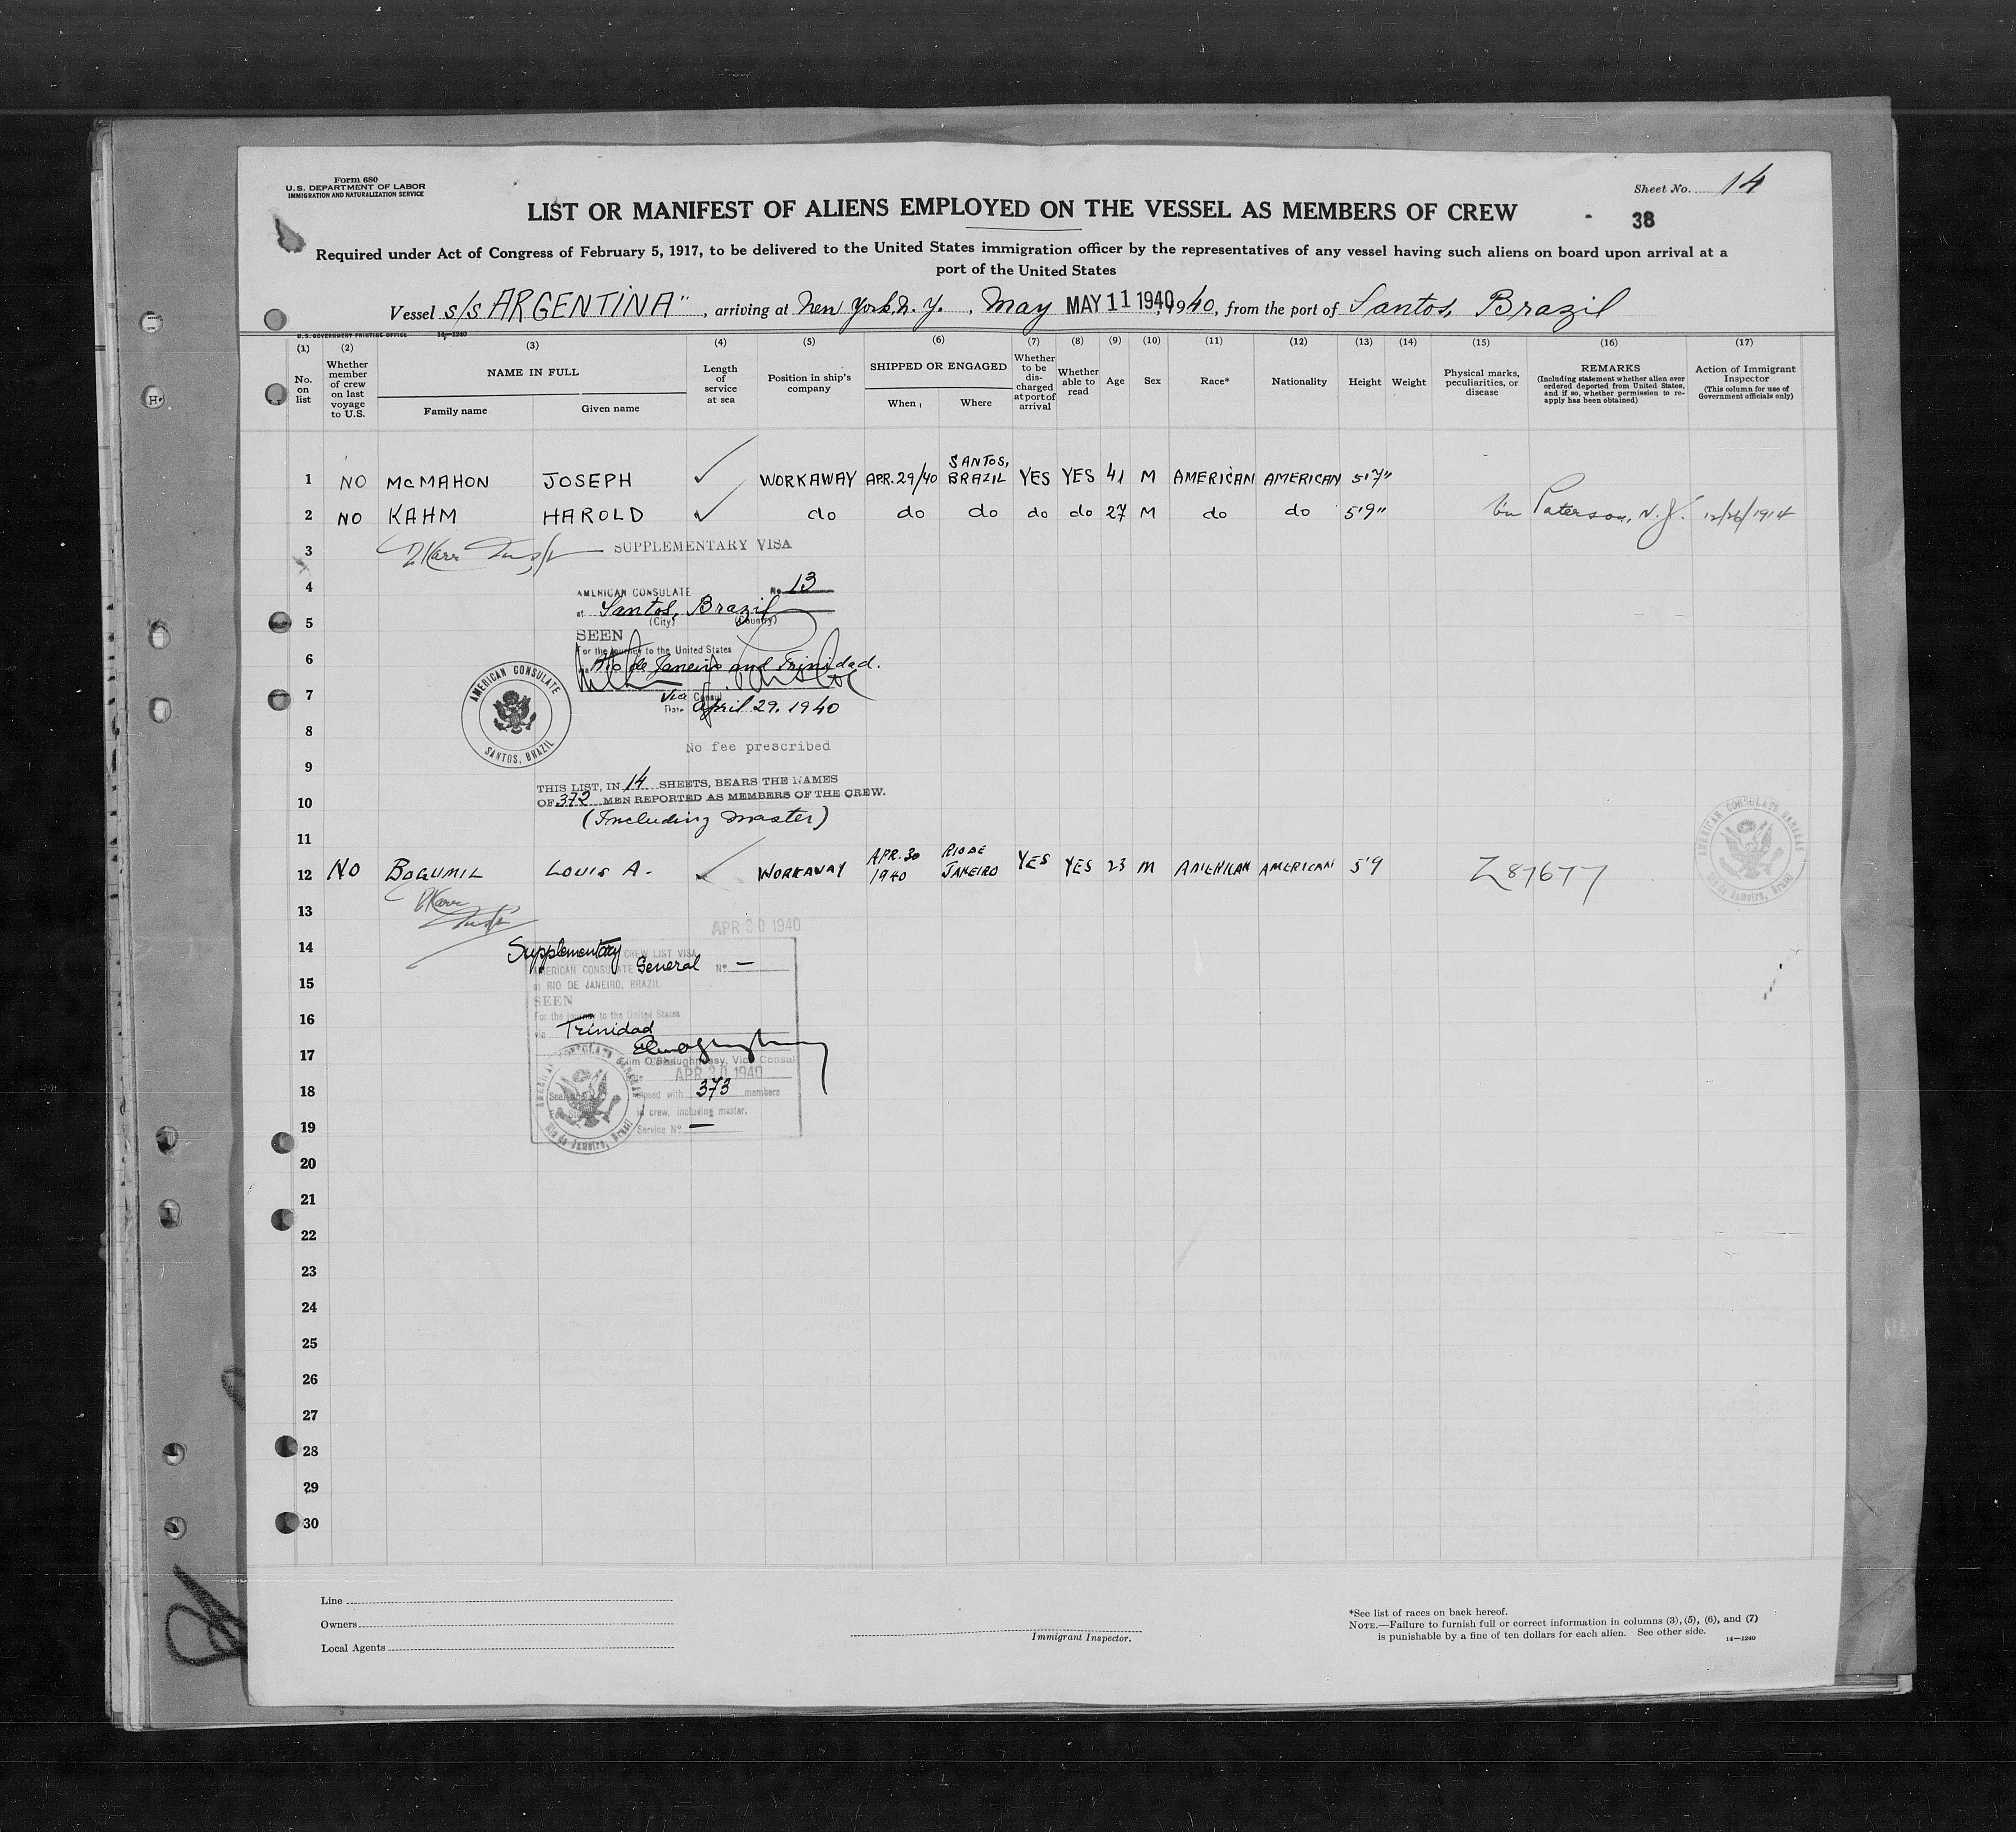 Form 680
U. S. DEPARTMENT OF LABOR
IMMIGRATION AND NATURALIZATION SERVICE
Sheet No. 14
LIST OR MANIFEST OF ALIENS EMPLOYED ON THE VESSEL AS MEMBERS OF CREW
38
Required under Act of Congress of February 5, 1917, to be delivered to the United States immigration officer by the representatives of any vessel having such aliens on board upon arrival at a
port of the United States
Vessel S/S ARGENTINA", arriving at New York, N. Y., May MAY 11 1940, 1940, from the port of Santos, Brazil
U. S. GOVERNMENT PRINTING OFFICE 14—1240
(1) (2) (3) (4) (5) (6) (7) (8) (9) (10) (11) (12) (13) (14) (15) (16) (17)
No. on list
Whether member of crew on last voyage to U.S.
NAME IN FULL
Family name
Given name
Length of service at sea
Position in ship's company
SHIPPED OR ENGAGED
When
Where
Whether to be discharged at port of arrival
Whether able to read
Age
Sex
Race*
Nationality
Height
Weight
Physical marks, peculiarities, or disease
REMARKS
(Including statement whether alien ever ordered deported from United States, and if so, whether permission to re-apply has been obtained)
Action of Immigrant Inspector
(This column for use of Government officials only)
1 NO McMAHON JOSEPH ✓ WORKAWAY APR. 29/40 SANTOS, BRAZIL YES YES 41 M AMERICAN AMERICAN 5'7"
2 NO KAHM HAROLD ✓ do do do do do 27 M do do 5'9" Paterson, N. J. 12/26/1914
3 SUPPLEMENTARY VISA
4 AMERICAN CONSULATE No. 13
at Santos, Brazil
5 (City) (Country)
SEEN
For the journey to the United States
6 Rio de Janeiro and Trinidad.
AMERICAN CONSULATE
SANTOS, BRAZIL
7 Via Consul
Date April 29, 1940
8 No fee prescribed
9
THIS LIST, IN 14 SHEETS, BEARS THE NAMES
10 OF 372 MEN REPORTED AS MEMBERS OF THE CREW.
(Including Master)
11
12 NO BOGUMIL LOUIS A. ✓ WORKAWAY APR. 30 1940 RIO DE JANEIRO YES YES 23 M AMERICAN AMERICAN 5'9 Z87677
AMERICAN CONSULATE GENERAL
Rio de Janeiro, Brazil
13
APR 30 1940
14 Supplementary CREW LIST VISA
AMERICAN CONSULATE General No. —
15 at RIO DE JANEIRO, BRAZIL
SEEN
16 For the journey to the United States
via Trinidad
17
Jim O'Shaughnessy, Vice Consul
APR 30 1940
18 closed with 373 members
in crew, including master.
19 Service No. —
AMERICAN CONSULATE GENERAL
Rio de Janeiro, Brazil
20
21
22
23
24
25
26
27
28
29
30
Line
Owners
Local Agents
Immigrant Inspector.
*See list of races on back hereof.
NOTE.—Failure to furnish full or correct information in columns (3), (5), (6), and (7)
is punishable by a fine of ten dollars for each alien. See other side.
14—1240